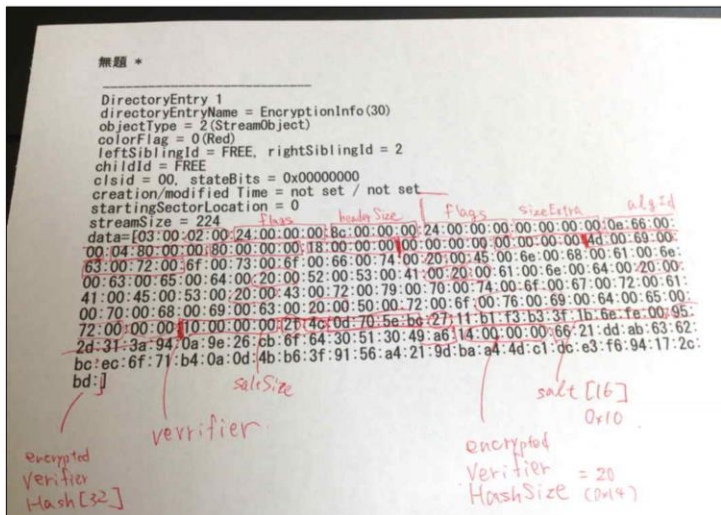 無題 *
DirectoryEntry 1
directoryEntryName = EncryptionInfo(30)
objectType = 2(StreamObject)
colorFlag = 0(Red)
leftSiblingId = FREE, rightSiblingId = 2
childId = FREE
clsid = 00, stateBits = 0x00000000
creation/modified Time = not set / not set
startingSectorLocation = 0
streamSize = 224
flags headerSize flags sizeExtra algId
data=[03:00:02:00:24:00:00:00:8c:00:00:00:24:00:00:00:00:00:00:00:0e:66:00:
00:04:80:00:00:80:00:00:00:18:00:00:00:00:00:00:00:00:00:00:00:4d:00:69:00:
63:00:72:00:6f:00:73:00:6f:00:66:00:74:00:20:00:45:00:6e:00:68:00:61:00:6e:
00:63:00:65:00:64:00:20:00:52:00:53:00:41:00:20:00:61:00:6e:00:64:00:20:00:
41:00:45:00:53:00:20:00:43:00:72:00:79:00:70:00:74:00:6f:00:67:00:72:00:61:
00:70:00:68:00:69:00:63:00:20:00:50:00:72:00:6f:00:76:00:69:00:64:00:65:00:
72:00:00:00:10:00:00:00:2f:4c:0d:70:5e:bc:27:11:b1:f3:b3:3f:1b:6e:fe:00:95:
2d:31:3a:94:0a:9e:26:cb:6f:64:30:51:30:49:a6:14:00:00:00:66:21:dd:ab:63:62:
bc:ec:6f:71:b4:0a:0d:4b:b6:3f:91:56:a4:21:9d:ba:a4:4d:c1:dc:e3:f6:94:17:2c:
bd:]
saltSize
salt [16]
0x10
verrifier
encrypted
Verifier
Hash[32]
encrypted
Verifier = 20
HashSize (0x14)